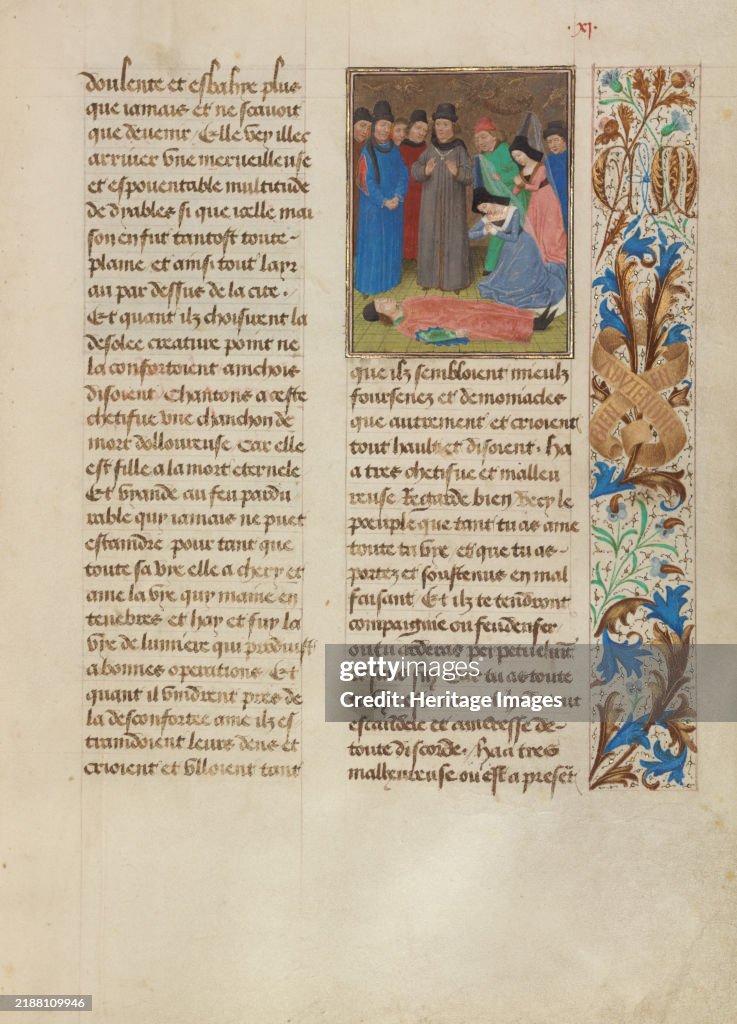 ·xj·
doulente et esbahie plus
que iamais et ne scauoit
que deuenir / Elle vey illec
arriuer vne merueilleuse
et espouentable multitude
de dyables si que icelle mai
son en fut tantost toute
plaine et ainsi tout layr
au par dessus de la cite.
Et quant ilz choisirent la
desolee creature point ne
la confortoient ainchois
disoient. Chantons a ceste
chetifue vne chanchon de
mort dolloureuse. Car elle
est fille a la mort eternele
Et viande au feu pardu
rable quy iamais ne puet
estaindre pour tant que
toute sa vye elle a chery et
ame la vye quy maine en
tenebres et hay et fuy la
vye de lumiere qui produist
a bonnes operations. Et
quant il vindrent pres de
la desconfortee ame ilz es
traindoient leurs dens et
crioient et vlloient tant
que ilz sembloient mieulz
foursenez et demoniacles
que autrement et crioient
tout hault et disoient. Ha
a tres chetifue et malleu
reuse Regarde bien vecy le
poeuple que tant tu as ame
toute ta vye et que tu as
portez et soustenus en mal
faisant Et ilz te tendront
compaignie ou feu denfer
ou tu arderas perpetuelmt
tu as toute
escandele et amistesse de
toute discorde. Haa tres
malheureuse ou est a present
gettyimages
Credit: Heritage Images
2188109946